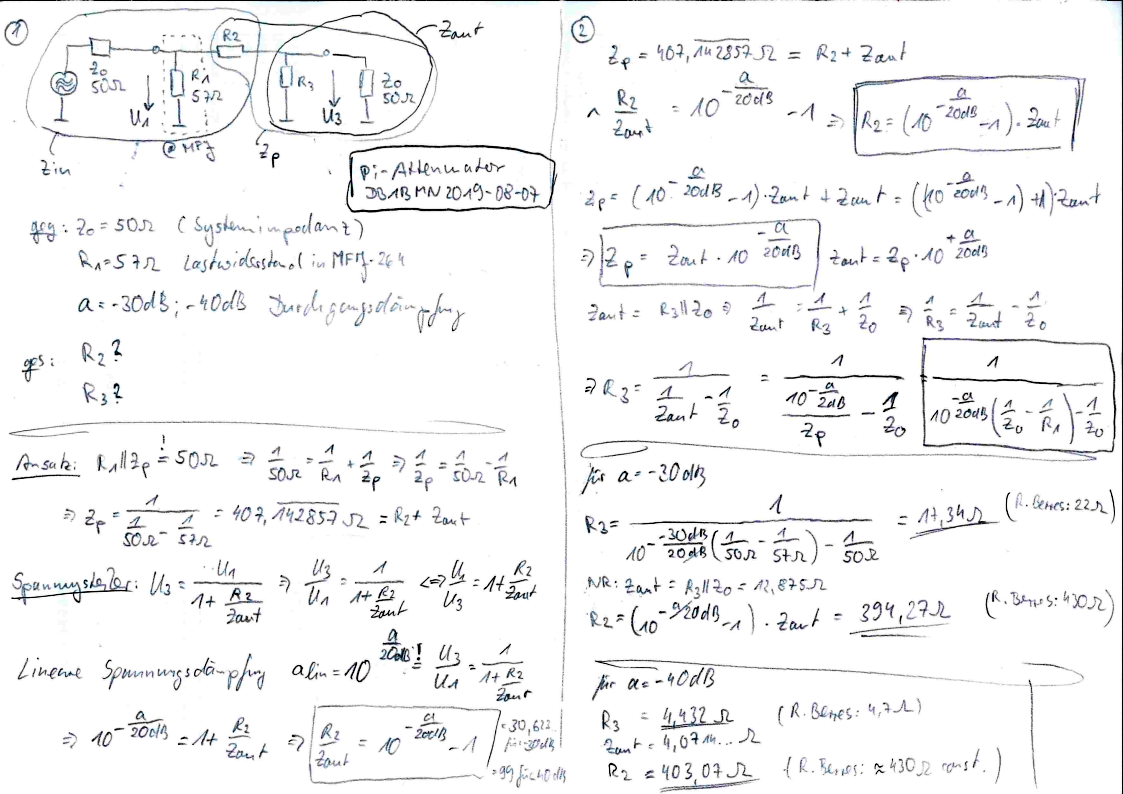 1
Zin
Z0
50Ω
U1
R1
57Ω
@MFJ
R2
Zp
R3
U3
Z0
50Ω
Zant
pi-Attenuator
DB1BMN 2019-08-07
geg: Z0 = 50Ω (Systemimpedanz)
R1 = 57Ω Lastwiderstand in MFJ-264
a = -30dB; -40dB Durchgangsdämpfung
ges: R2?
R3?
Ansatz: R1||Zp =! 50Ω ⇒ 1/50Ω = 1/R1 + 1/Zp ⇒ 1/Zp = 1/50Ω - 1/R1
⇒ Zp = 1/(1/50Ω - 1/57Ω) = 407,142857Ω = R2 + Zant
Spannungsteiler: U3 = U1/(1 + R2/Zant) ⇒ U3/U1 = 1/(1 + R2/Zant) ⇔ U1/U3 = 1 + R2/Zant
Lineare Spannungsdämpfung alin = 10^(a/20dB) =! U3/U1 = 1/(1 + R2/Zant)
⇒ 10^(-a/20dB) = 1 + R2/Zant ⇒ R2/Zant = 10^(-a/20dB) - 1
= 30,622..
für -30dB
= 99 für 40dB
2
Zp = 407,142857Ω = R2 + Zant
∧ R2/Zant = 10^(-a/20dB) - 1 ⇒ R2 = (10^(-a/20dB) - 1) · Zant
Zp = (10^(-a/20dB) - 1) · Zant + Zant = ((10^(-a/20dB) - 1) + 1) · Zant
⇒ Zp = Zant · 10^(-a/20dB) Zant = Zp · 10^(+a/20dB)
Zant = R3||Z0 ⇒ 1/Zant = 1/R3 + 1/Z0 ⇒ 1/R3 = 1/Zant - 1/Z0
⇒ R3 = 1/(1/Zant - 1/Z0) = 1/(10^(-a/2dB)/Zp - 1/Z0) = 1/(10^(-a/20dB) (1/Z0 - 1/R1) - 1/Z0)
für a = -30dB
R3 = 1/(10^(-(-30dB)/20dB) (1/50Ω - 1/57Ω) - 1/50Ω) = 17,34Ω (R. Berres: 22Ω)
NR: Zant = R3||Z0 = 12,875Ω
R2 = (10^(-a/20dB) - 1) · Zant = 394,27Ω (R. Berres: 430Ω)
für a = -40dB
R3 = 4,432Ω (R. Berres: 4,7Ω)
Zant = 4,0714...Ω
R2 = 403,07Ω (R. Berres: ≈430Ω const.)